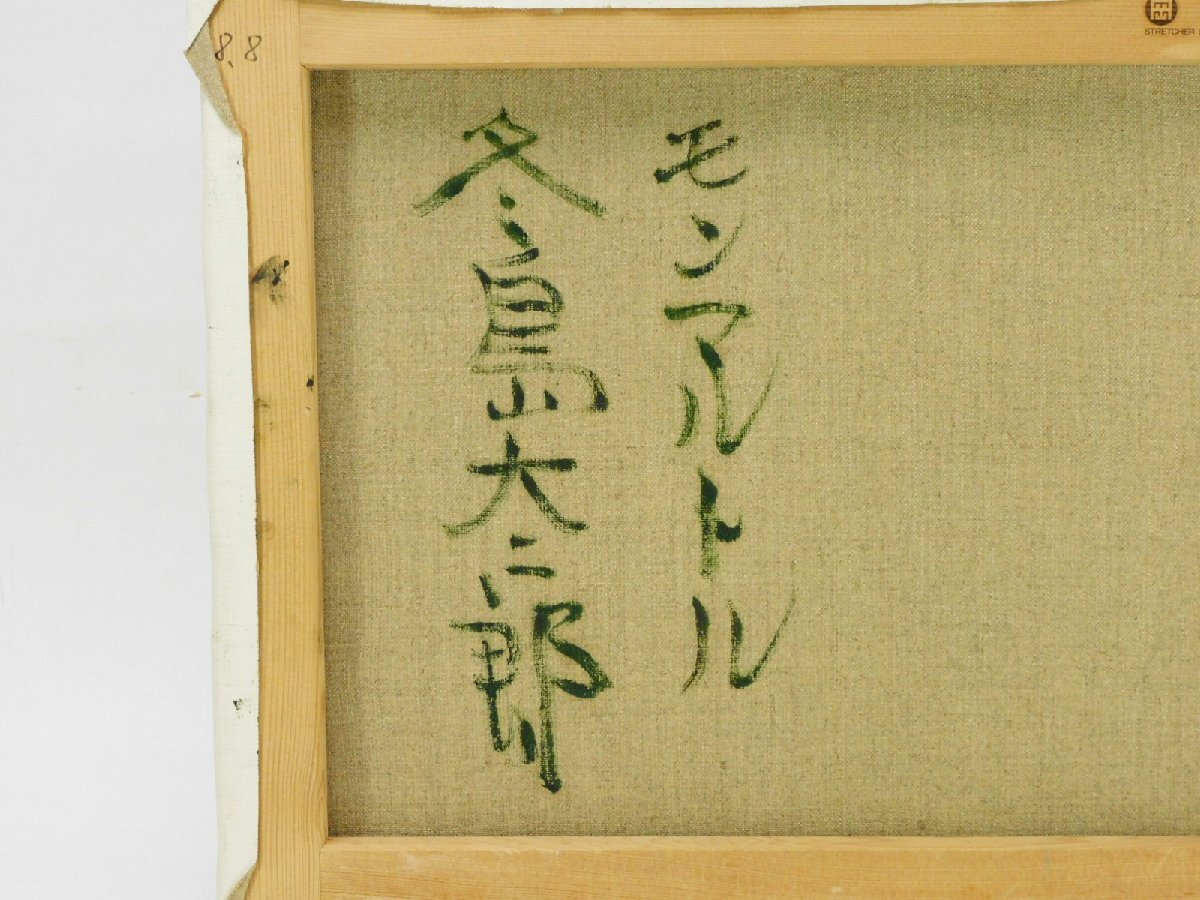 モンマルトル
冬島大二郎
8.8
STRETCHER